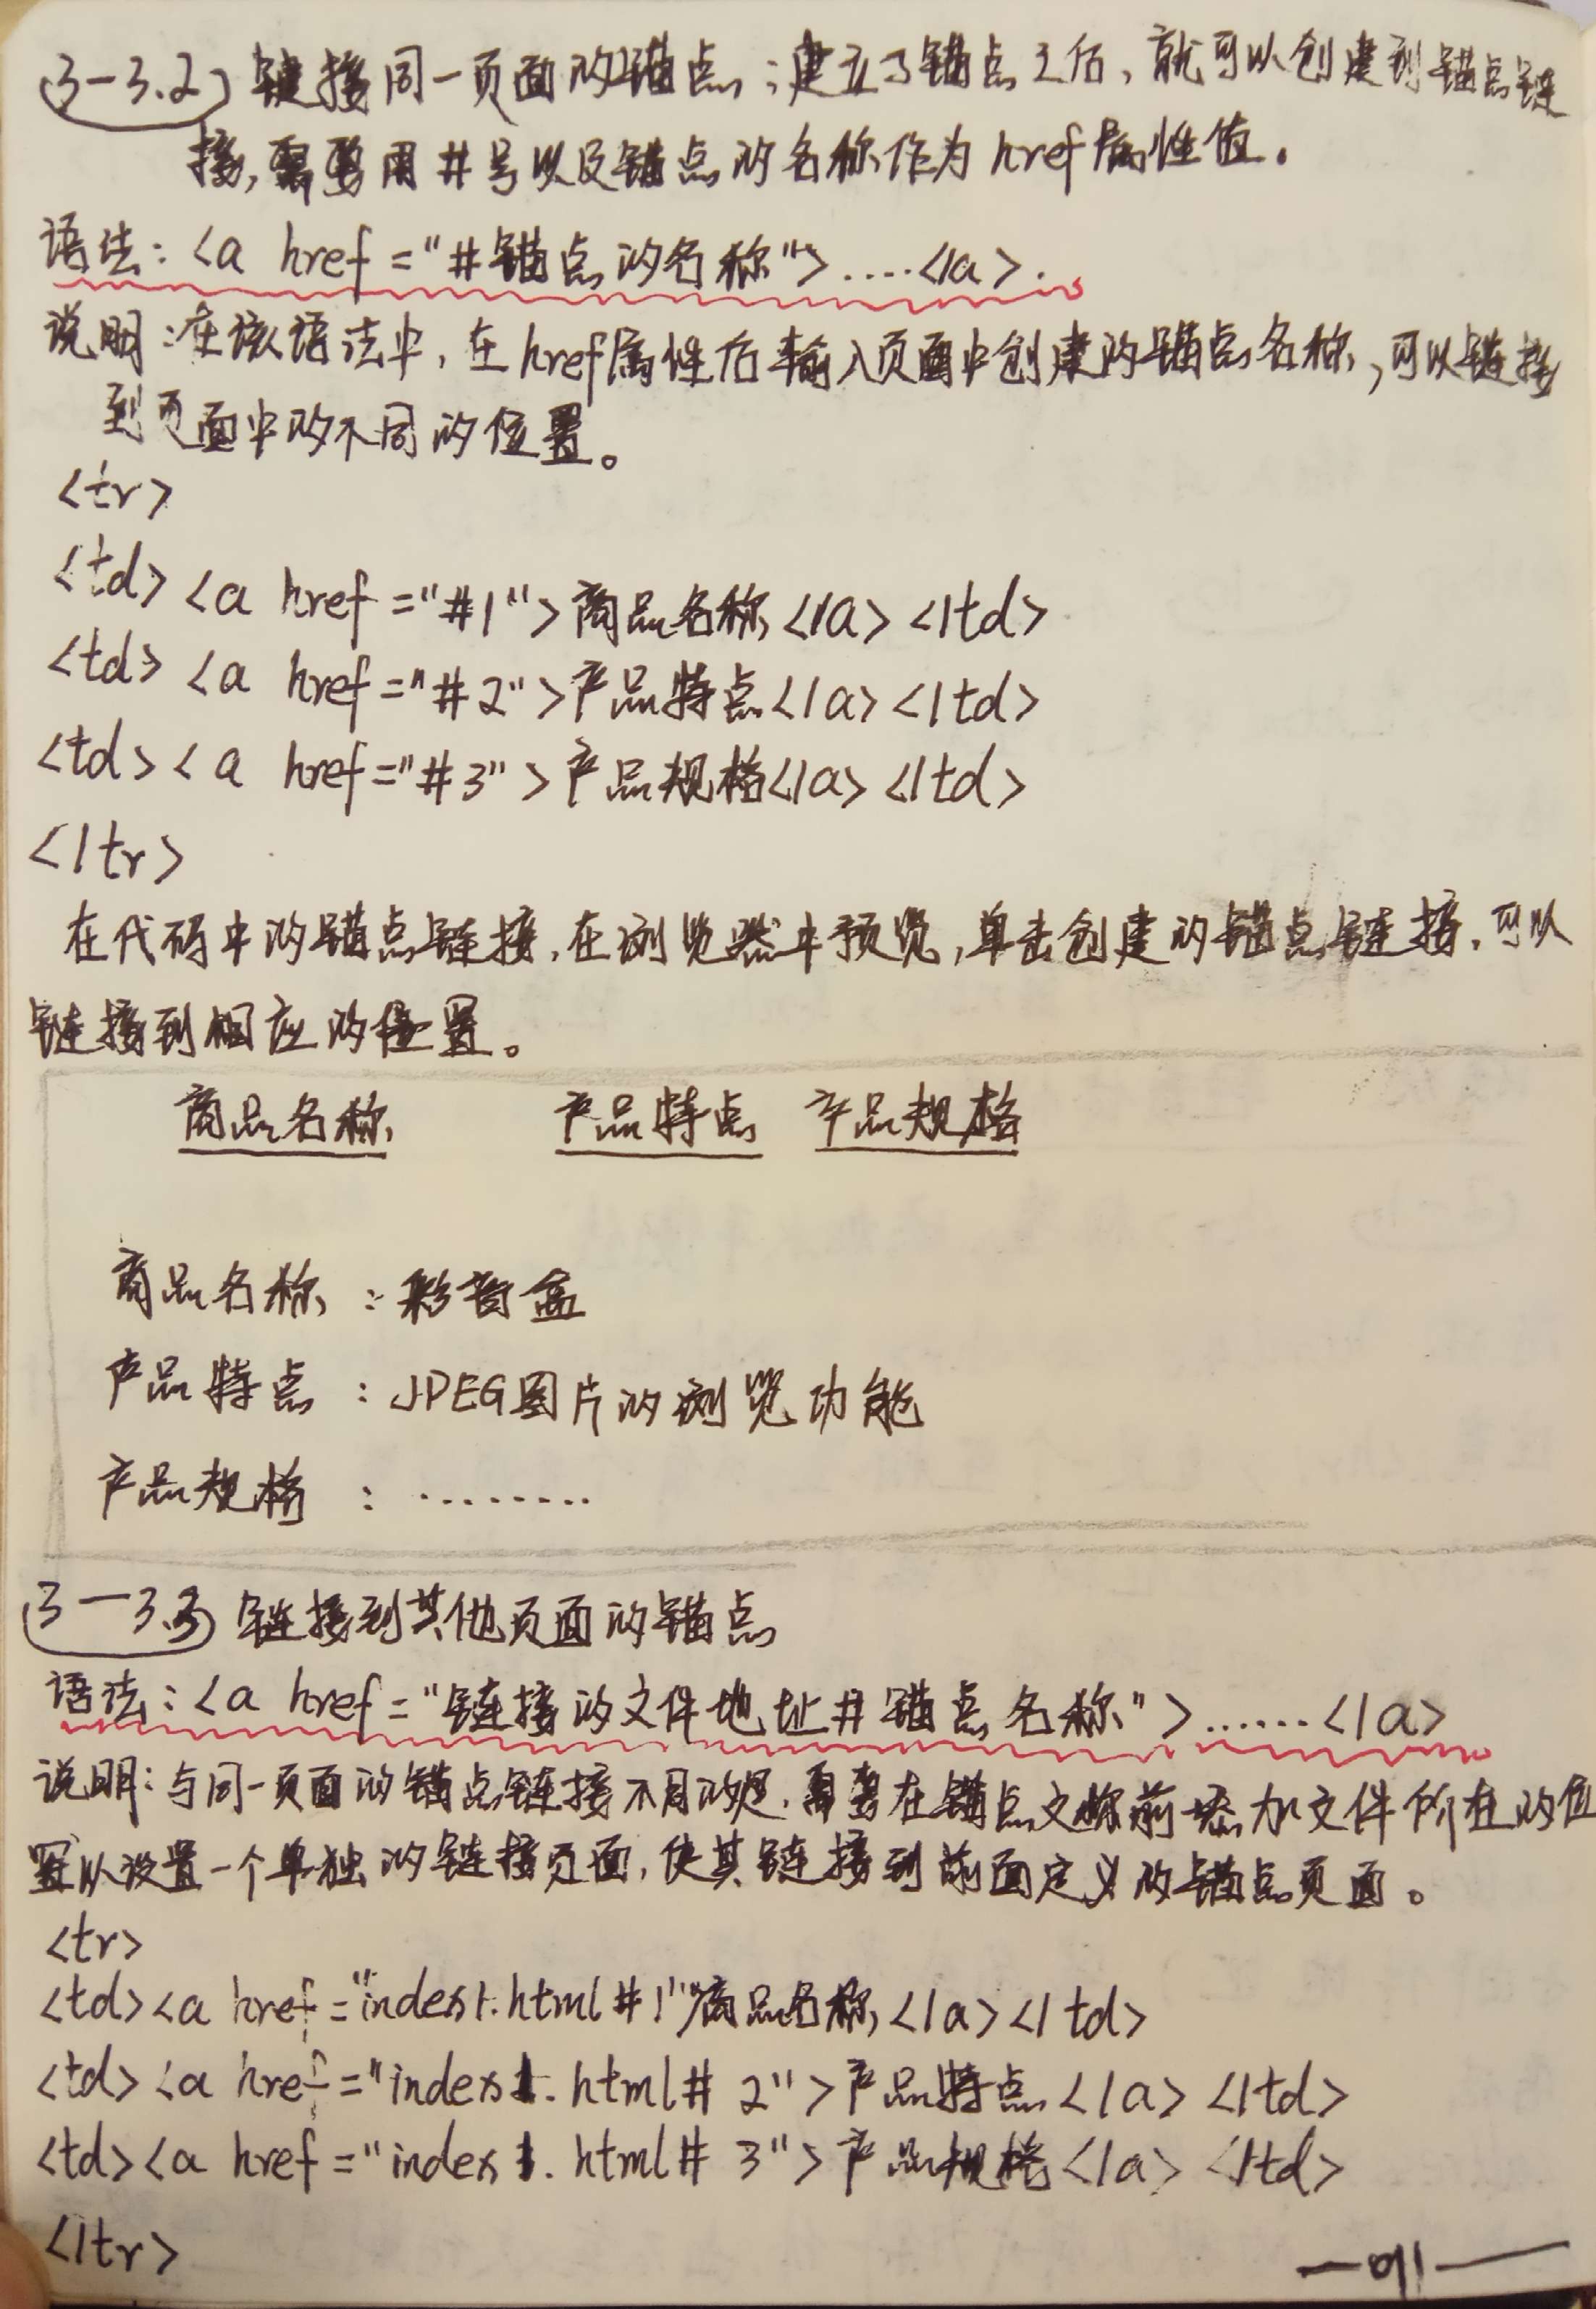 3-3.2) 链接同一页面的锚点;建立了锚点之后,就可以创建到锚点链
接,需要用#号以及锚点的名称作为href属性值。
语法:<a href="#锚点的名称">....</a>.
说明:在该语法中,在href属性后输入页面中创建的锚点名称,可以链接
到页面中的不同的位置。
<tr>
<td><a href="#1">商品名称</a></td>
<td><a href="#2">产品特点</a></td>
<td><a href="#3">产品规格</a></td>
</tr>
在代码中的锚点链接,在浏览器中预览,单击创建的锚点链接,可以
链接到相应的位置。
商品名称 产品特点 产品规格
商品名称:彩音盒
产品特点:JPEG图片的浏览功能
产品规格:.........
3-3.3) 链接到其他页面的锚点
语法:<a href="链接的文件地址#锚点名称">......</a>
说明:与同一页面的锚点链接不同的是,需要在锚点文称前添加文件所在的位
置以设置一个单独的链接页面,使其链接到前面定义的锚点页面。
<tr>
<td><a href="index1.html#1">商品名称</a></td>
<td><a href="index1.html#2">产品特点</a></td>
<td><a href="index1.html#3">产品规格</a></td>
</tr>